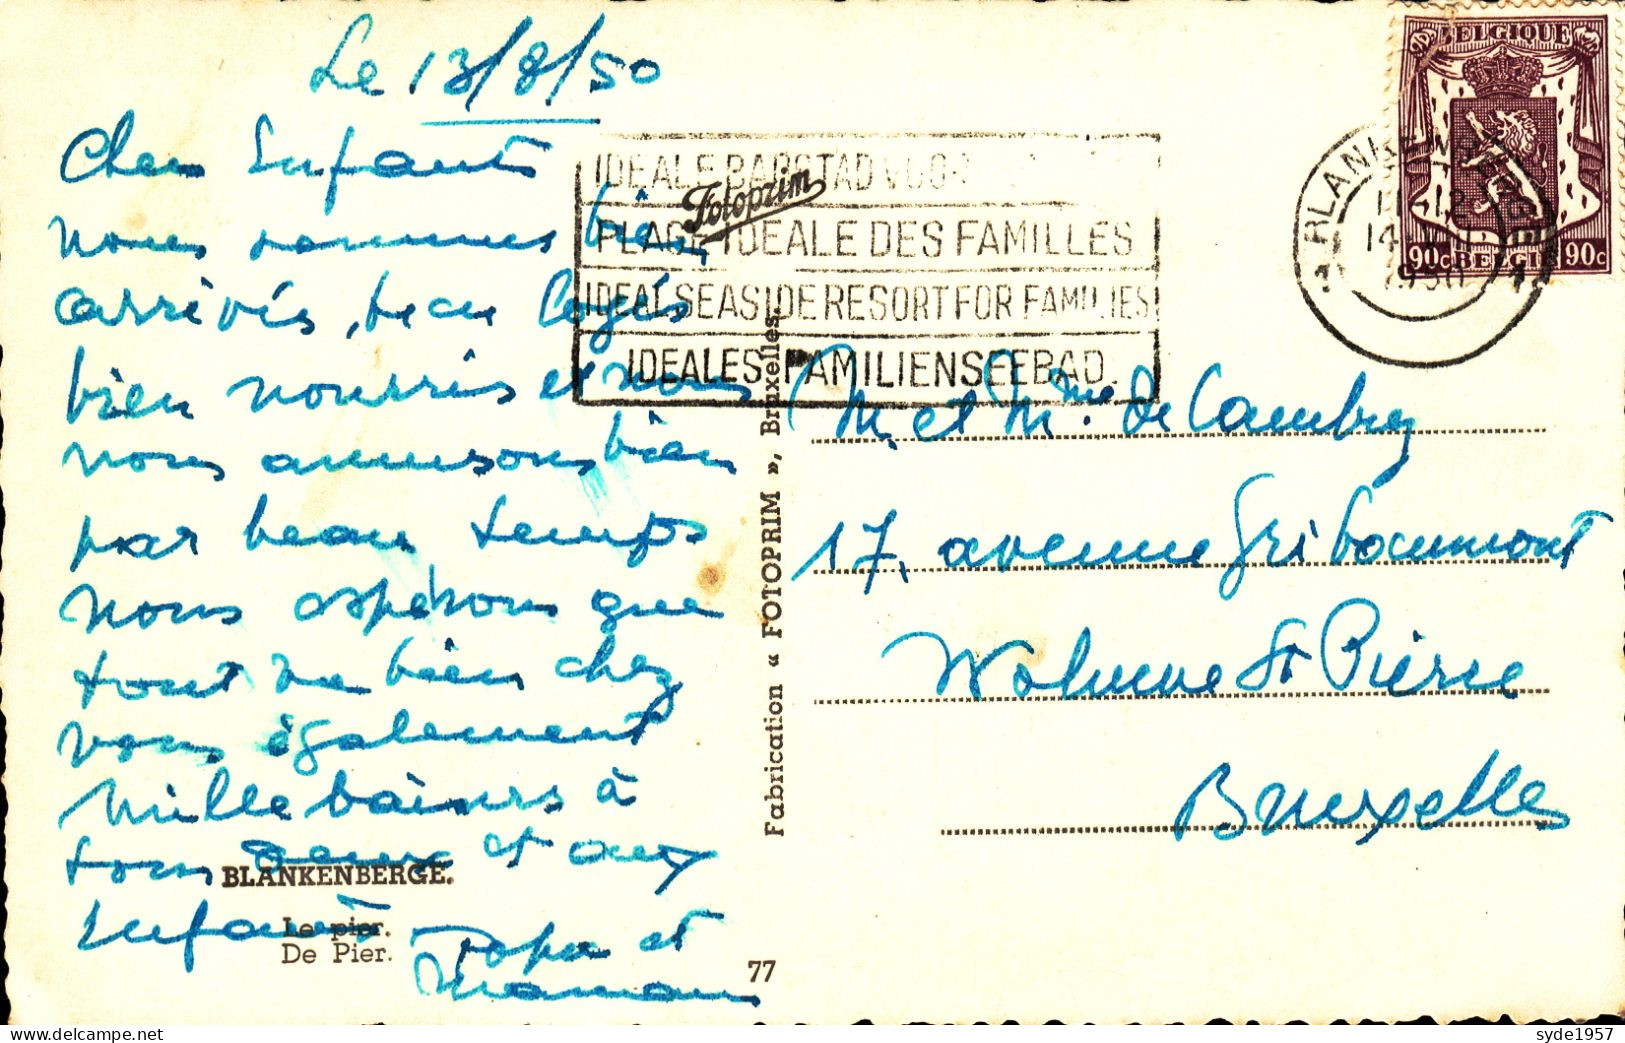 Le 13/8/50
Chers Enfants
nous sommes bien
arrivés, bien logés
bien nourris et nous
nous amusons bien
par beau temps
nous espérons que
tout va bien chez
vous également
Mille baisers à
tous deux et aux
Enfants
Papa et
Maman
BLANKENBERGE.
Le pier.
De Pier.
77
Fabrication « FOTOPRIM », Bruxelles.
Fotoprim
IDEALE BADSTAD VOOR
PLAGE IDEALE DES FAMILLES
IDEAL SEASIDE RESORT FOR FAMILIES
IDEALES FAMILIENSEEBAD.
BLANKENBERGE
14 VIII
1950
BELGIQUE
90c BELGIE 90c
M. et Mme. De Cambry
17, avenue Gribaumont
Woluwe St Pierre
Bruxelles
syde1957